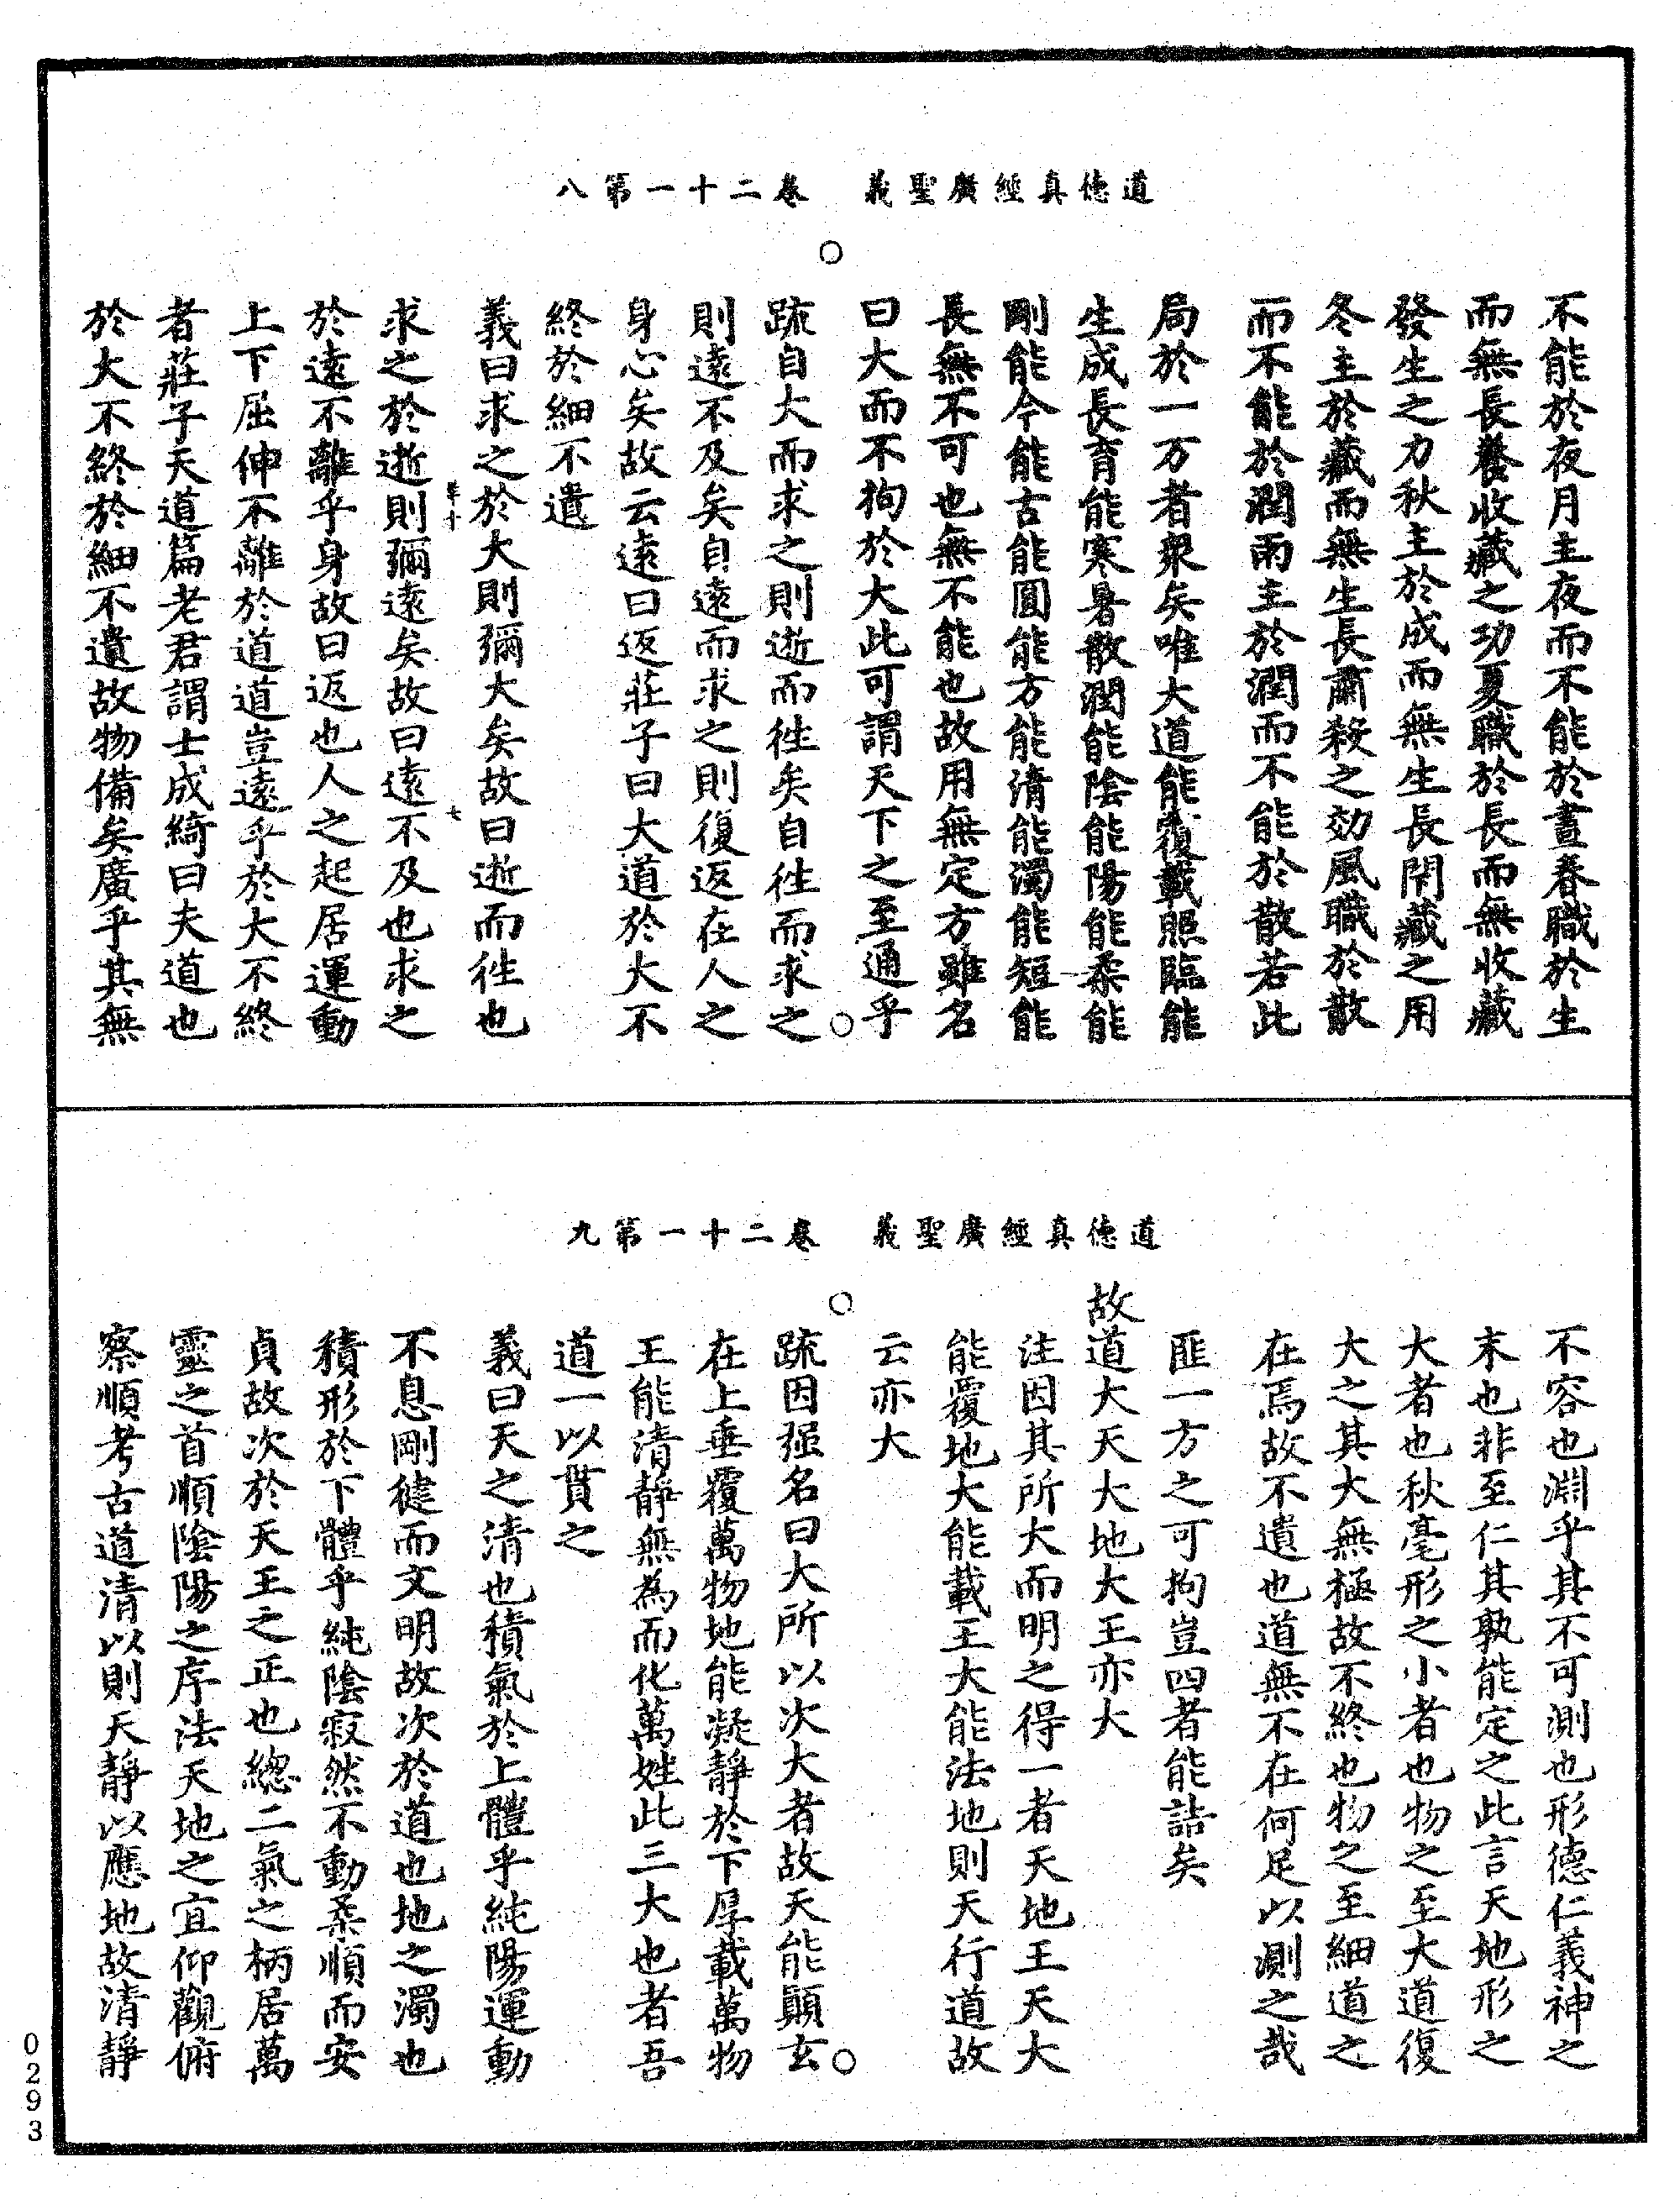 道德真經廣聖義　卷二十一第八
不能於夜月主夜而不能於晝春職於生
而無長養收藏之功夏職於長而無收藏
發生之力秋主於成而無生長閉藏之用
冬主於藏而無生長肅殺之効風職於散
而不能於潤雨主於潤而不能於散若此
局於一万者衆矣唯大道能覆載照臨能
生成長育能寒暑散潤能陰能陽能柔能
剛能今能古能圓能方能清能濁能短能
長無不可也無不能也故用無定方雖名
曰大而不拘於大此可謂天下之至通乎
疏自大而求之則逝而徃矣自徃而求之
則遠不及矣自遠而求之則復返在人之
身心矣故云遠曰返莊子曰大道於大不
終於細不遺
義曰求之於大則彌大矣故曰逝而徃也
求之於逝則彌遠矣故曰遠不及也求之
於遠不離乎身故曰返也人之起居運動
上下屈伸不離於道道豈遠乎於大不終
者莊子天道篇老君謂士成綺曰夫道也
於大不終於細不遺故物備矣廣乎其無
七
道德真經廣聖義　卷二十一第九
不容也淵乎其不可測也形德仁義神之
末也非至仁其孰能定之此言天地形之
大者也秋毫形之小者也物之至大道復
大之其大無極故不終也物之至細道之
在焉故不遺也道無不在何足以測之哉
匪一方之可拘豈四者能詰矣
故道大天大地大王亦大
注因其所大而明之得一者天地王天大
能覆地大能載王大能法地則天行道故
云亦大
疏因强名曰大所以次大者故天能顚玄
在上垂覆萬物地能凝靜於下厚載萬物
王能清靜無為而化萬姓此三大也者吾
道一以貫之
義曰天之清也積氣於上體乎純陽運動
不息剛健而文明故次於道也地之濁也
積形於下體乎純陰寂然不動柔順而安
貞故次於天王之正也總二氣之柄居萬
靈之首順陰陽之序法天地之宜仰觀俯
察順考古道清以則天靜以應地故清靜
0293